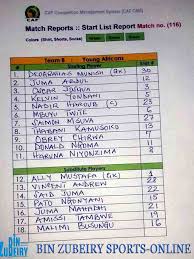 CAF Competition Management System (CAF CMS)
Match Reports :: Start List Report Match no. (116)
Colors (Shirt, Shorts, Socks) Green Green Green
Team B : Young Africans
Starting Player Shirt
1 DEOGRATIUS MUNISH (GK) 30
2 JUMA ABDUL 12
3 OSCAR JOSHUA 3
4 KELVIN YONDANI 5
5 NADIR HAROUB (C) 23
6 MBUYU TWITE 6
7 SAIMON MSUVA 27
8 THABANI KAMUSOKO 13
9 OBREY CHIRWA 7
10 DONALD NGOMA 11
11 HARUNA NIYONZIMA 8
Substitute Players
12 ALLY MUSTAFA (GK) 1
13 VINCENT ANDREW
14 SAID JUMA
15 PATO NGONYANI
16 JUMA MAHADHI
17 AMISSI TAMBWE
18 MALIMI BUSUNGU 16
BIN ZUBEIRY
BIN ZUBEIRY SPORTS-ONLINE